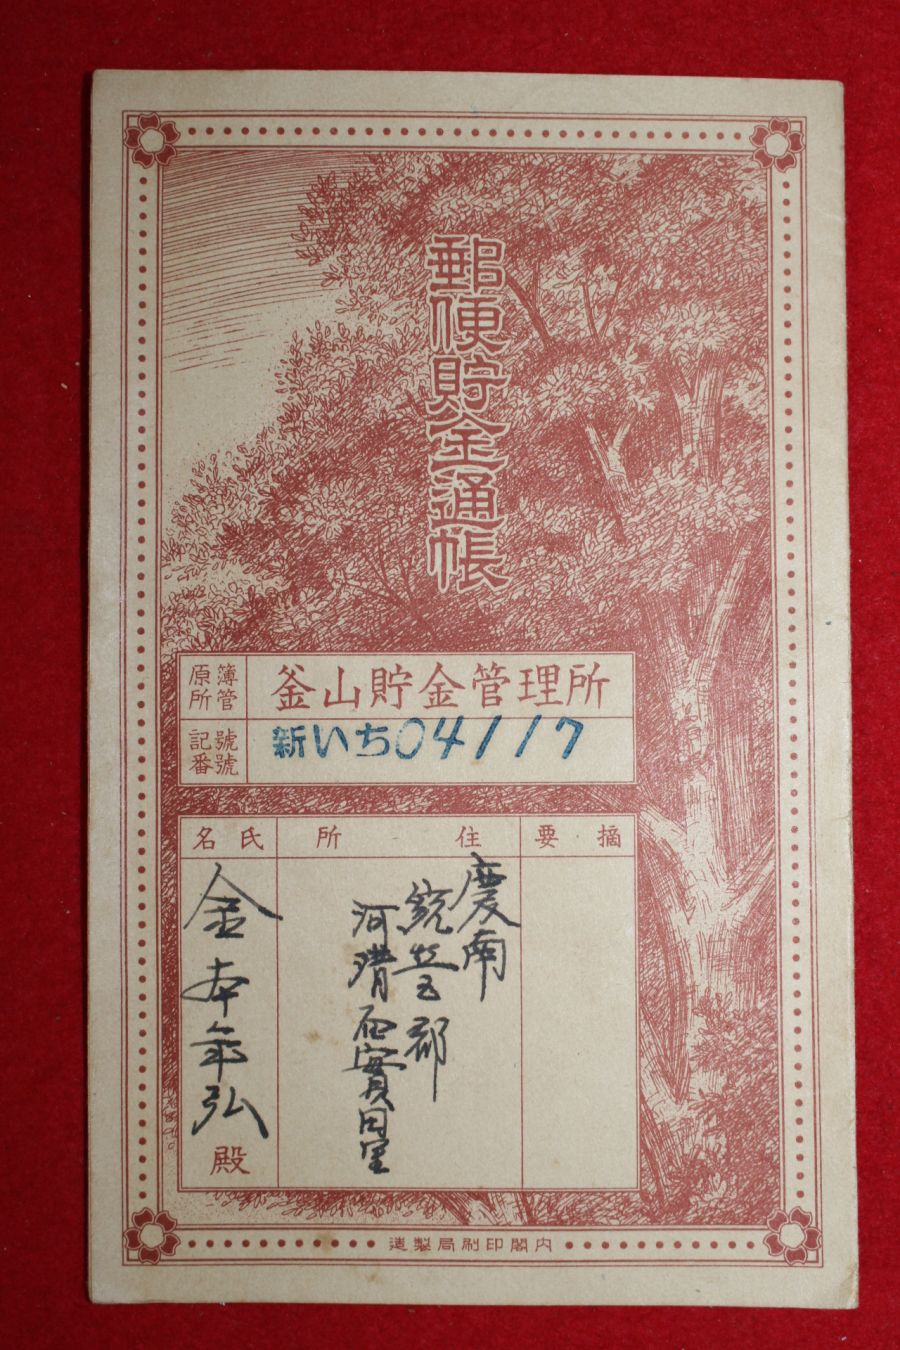 郵便貯金通帳
原簿
所管
釜山貯金管理所
記號
番號
新いち04117
摘要
住所
氏名
慶南
統營郡
河淸面實田里
金本年弘
殿
內閣印刷局製造